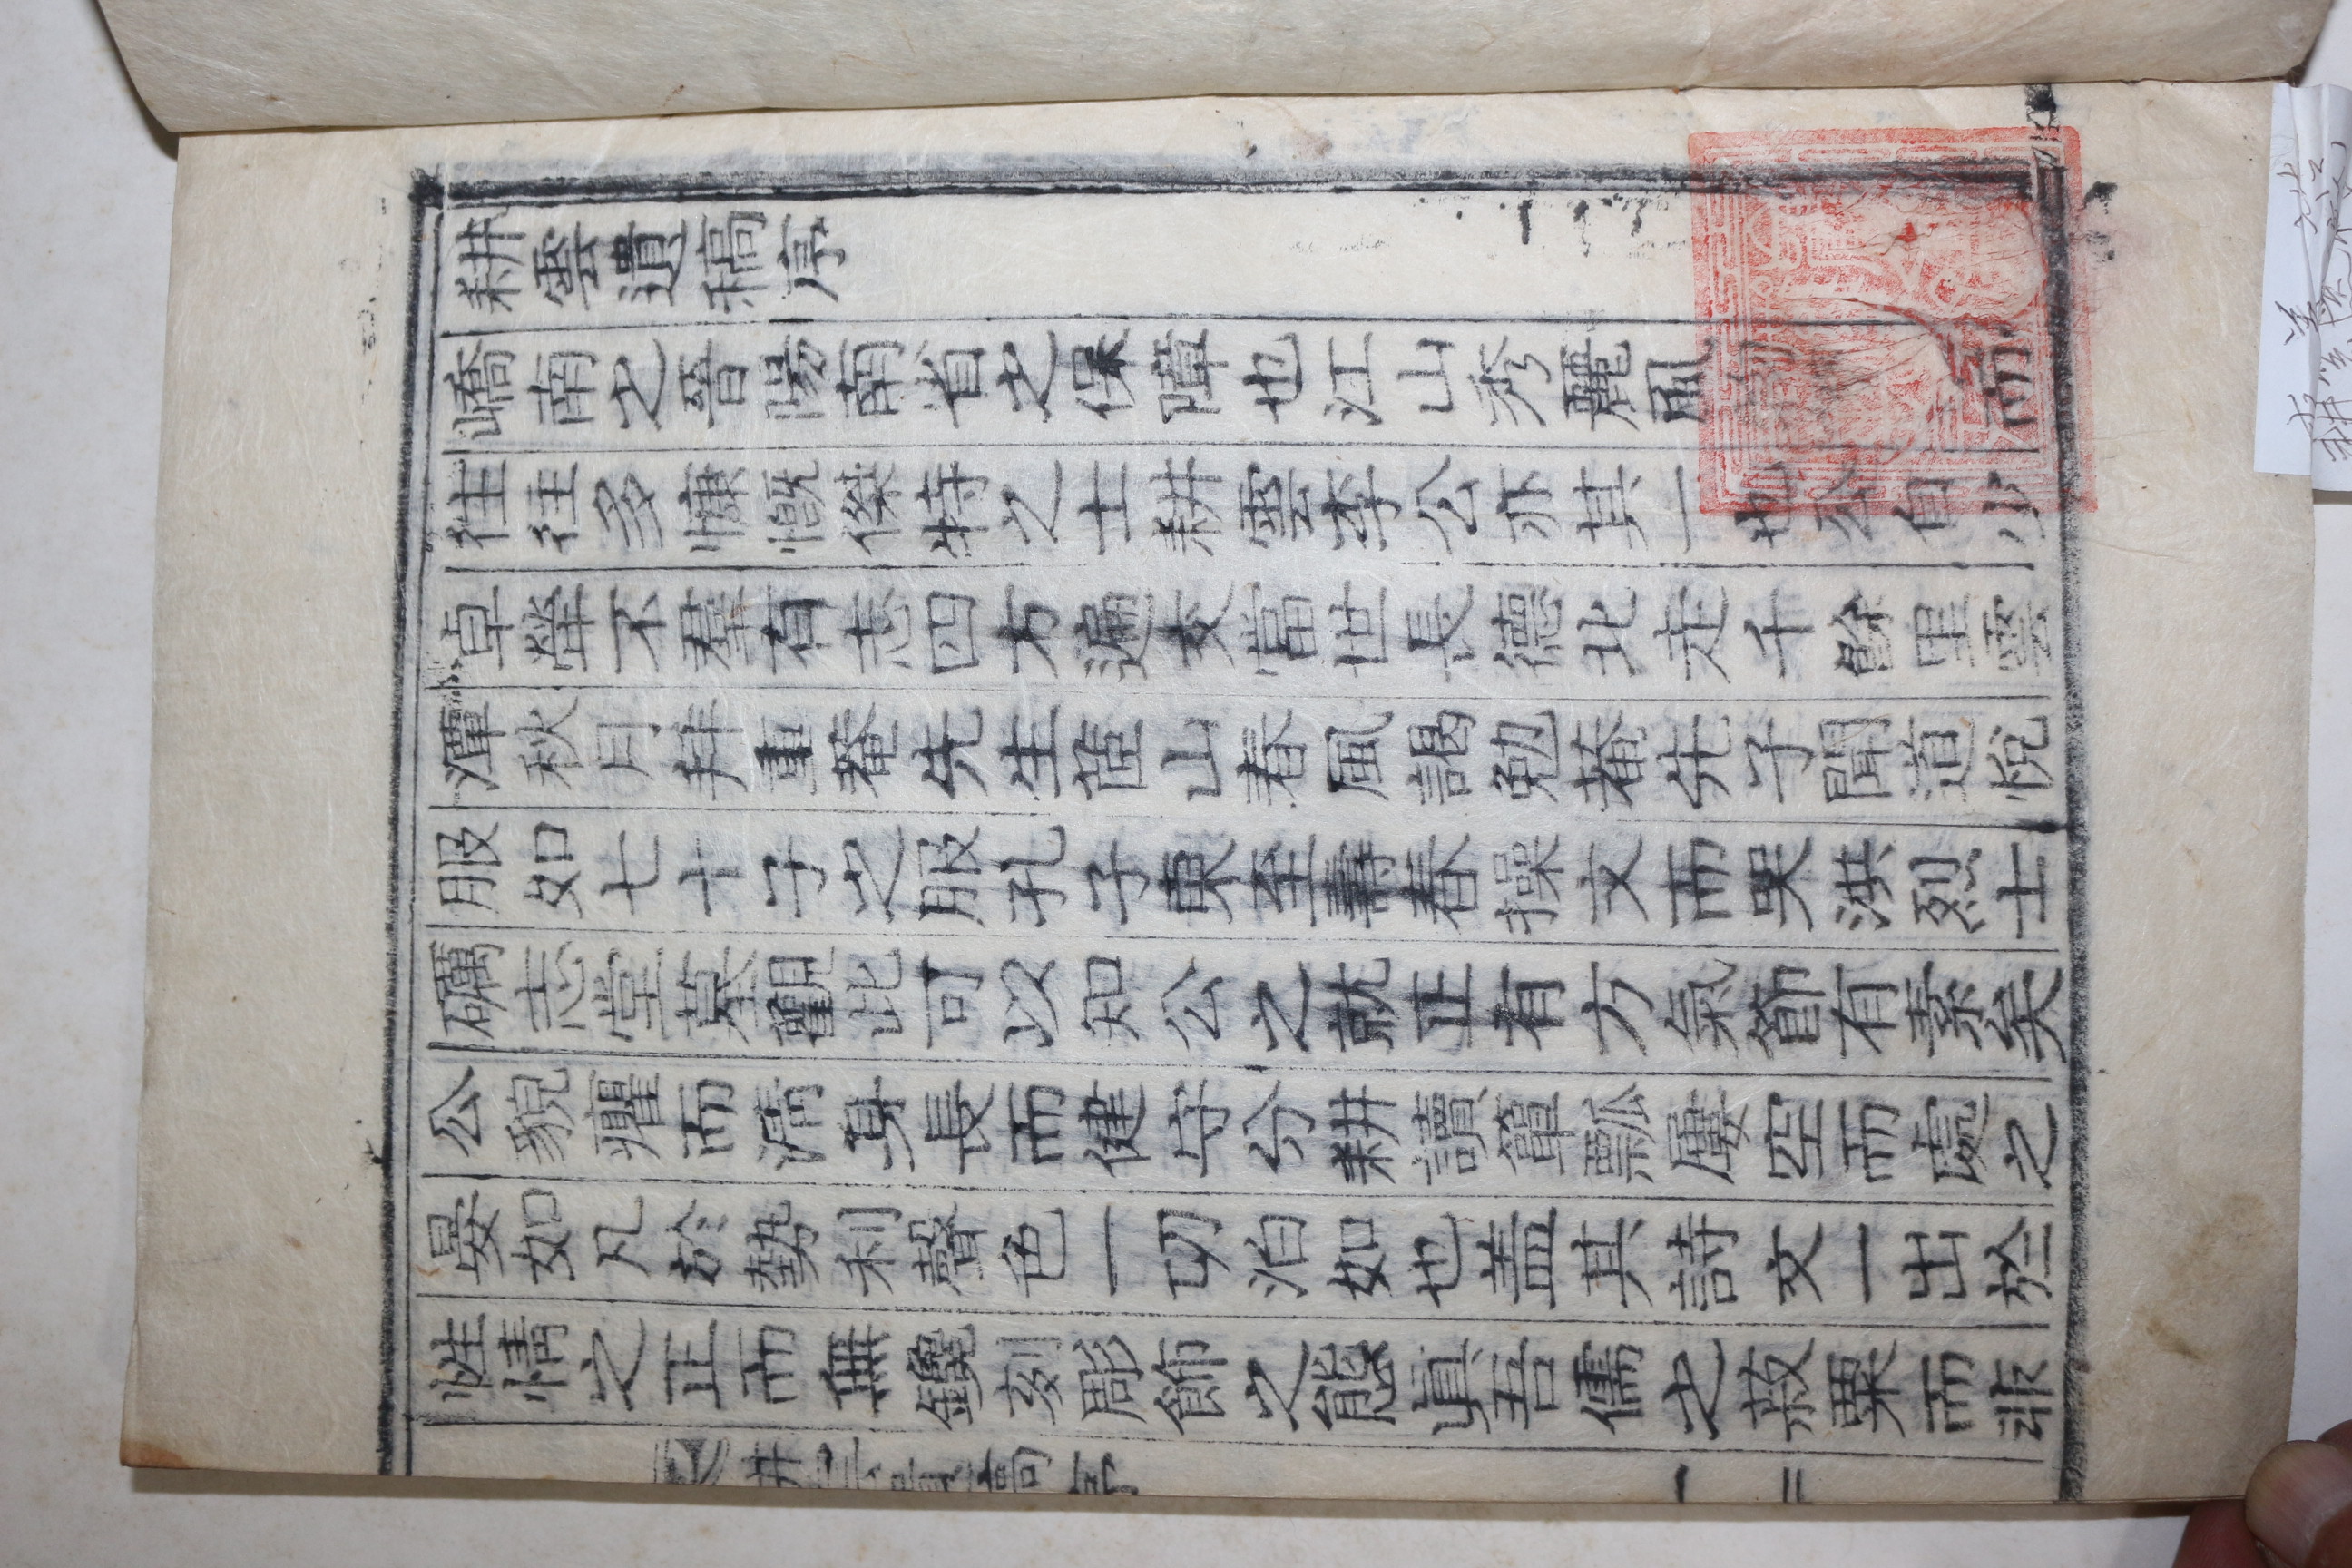 耕雲遺稿序
嶠南之晉陽南省之保障也江山秀麗風而
往往多慷慨傑特之士耕雲李公亦其一也公自少
卓犖不羣有志四方遍交當世長德北走千餘里雲
潭秋月拜重菴先生茝山春風謁勉菴先子聞道悅
服如七十子之服孔子東至壽春操文而哭洪烈士
礪志堂墓觀此可以知公之就正有方氣節有素矣
公貌癯而淸身長而健守分耕讀簞瓢屢空而處之
晏如凡於勢利聲色一切泊如也盖其詩文一出於
性情之正而無鑱刻彫飾之態眞吾儒之菽粟而非
耕雲遺稿序
一
耕雲遺稿